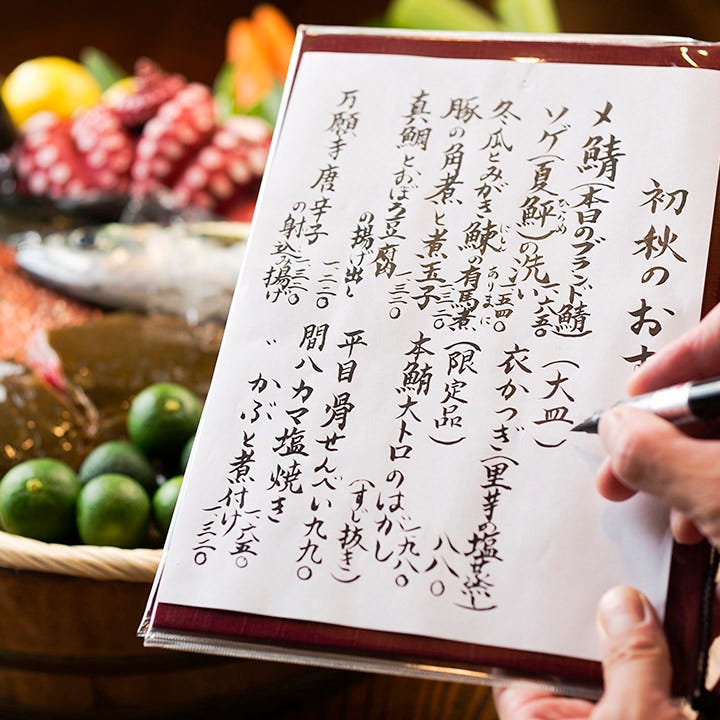 初秋のお
〆鯖(本日のブランド鯖)
一、六五〇
ソゲ(夏鮃)の洗い
一、五四〇
冬瓜とみがき鰊の有馬煮
にしん
ありまに
豚の角煮と煮玉子
一、三二〇
真鯛とおぼろ豆腐
の揚げ出し
一、三二〇
万願寺唐辛子
の射込み揚げ
一、三二〇
(大皿)
衣かつぎ(里芋の塩茹)
八八〇
(限定品)
本鮪大トロのはがし
(すじ抜き)
一、九八〇
平目骨せんべい
九九〇
間八カマ塩焼き
一、六五〇
〃かぶと煮付け
一、三二〇